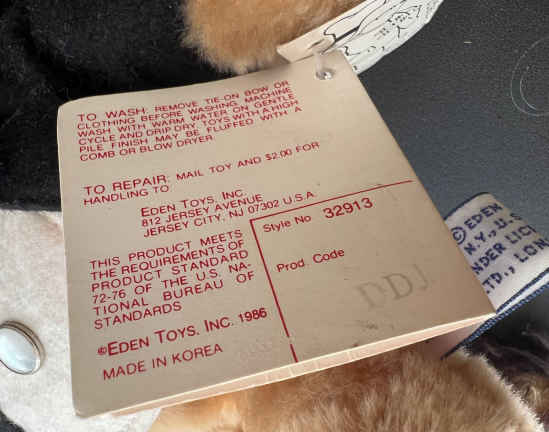 TO WASH: REMOVE TIE-ON BOW OR
CLOTHING BEFORE WASHING. MACHINE
WASH WITH WARM WATER ON GENTLE
CYCLE AND DRIP DRY. TOYS WITH A HIGH
PILE FINISH MAY BE FLUFFED WITH A
COMB OR BLOW DRYER.
TO REPAIR: MAIL TOY AND $2.00 FOR
HANDLING TO
EDEN TOYS, INC.
812 JERSEY AVENUE
JERSEY CITY, NJ 07302 U.S.A.
THIS PRODUCT MEETS
THE REQUIREMENTS OF
PRODUCT STANDARD
72-76 OF THE U.S. NA-
TIONAL BUREAU OF
STANDARDS
©EDEN TOYS, INC. 1986
MADE IN KOREA
Style No 32913
Prod Code
DDJ
©EDEN
N.Y., U.S
NDER LIC
TD., LON